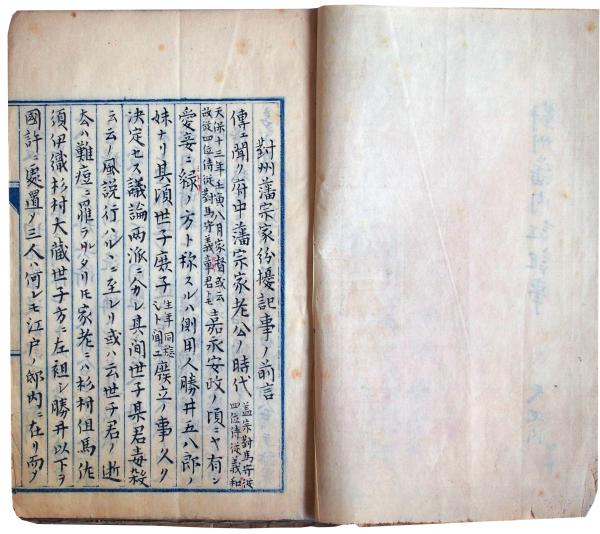 對州藩宗家紛擾記事ノ前言
傳エ聞ク府中藩宗家老公ノ時代
蓋宗對馬守従
四位侍従義和
天保十三年壬寅八月家督或云
故従四位侍従對馬守義章君也
嘉永安政ノ頃ニヤ有シ
愛妾ニ緑ノ方ト称スルハ側用人勝井五八郎ノ
妹ナリ其頃世子
廢立ノ事久ク
決定セス議論両派ニ分レ其間世子某君毒殺
云々ノ風説行ハルヽニ至レリ或ハ云世子君ノ逝
去ハ難痘ニ罹ラレタリト家老ニハ杉村但馬佐
須伊織杉村大蔵世子方ニ左袒シ勝井以下ヲ
國許ニ處置ス三人ハ何レモ江戸ノ邸内ニ在リ而メ